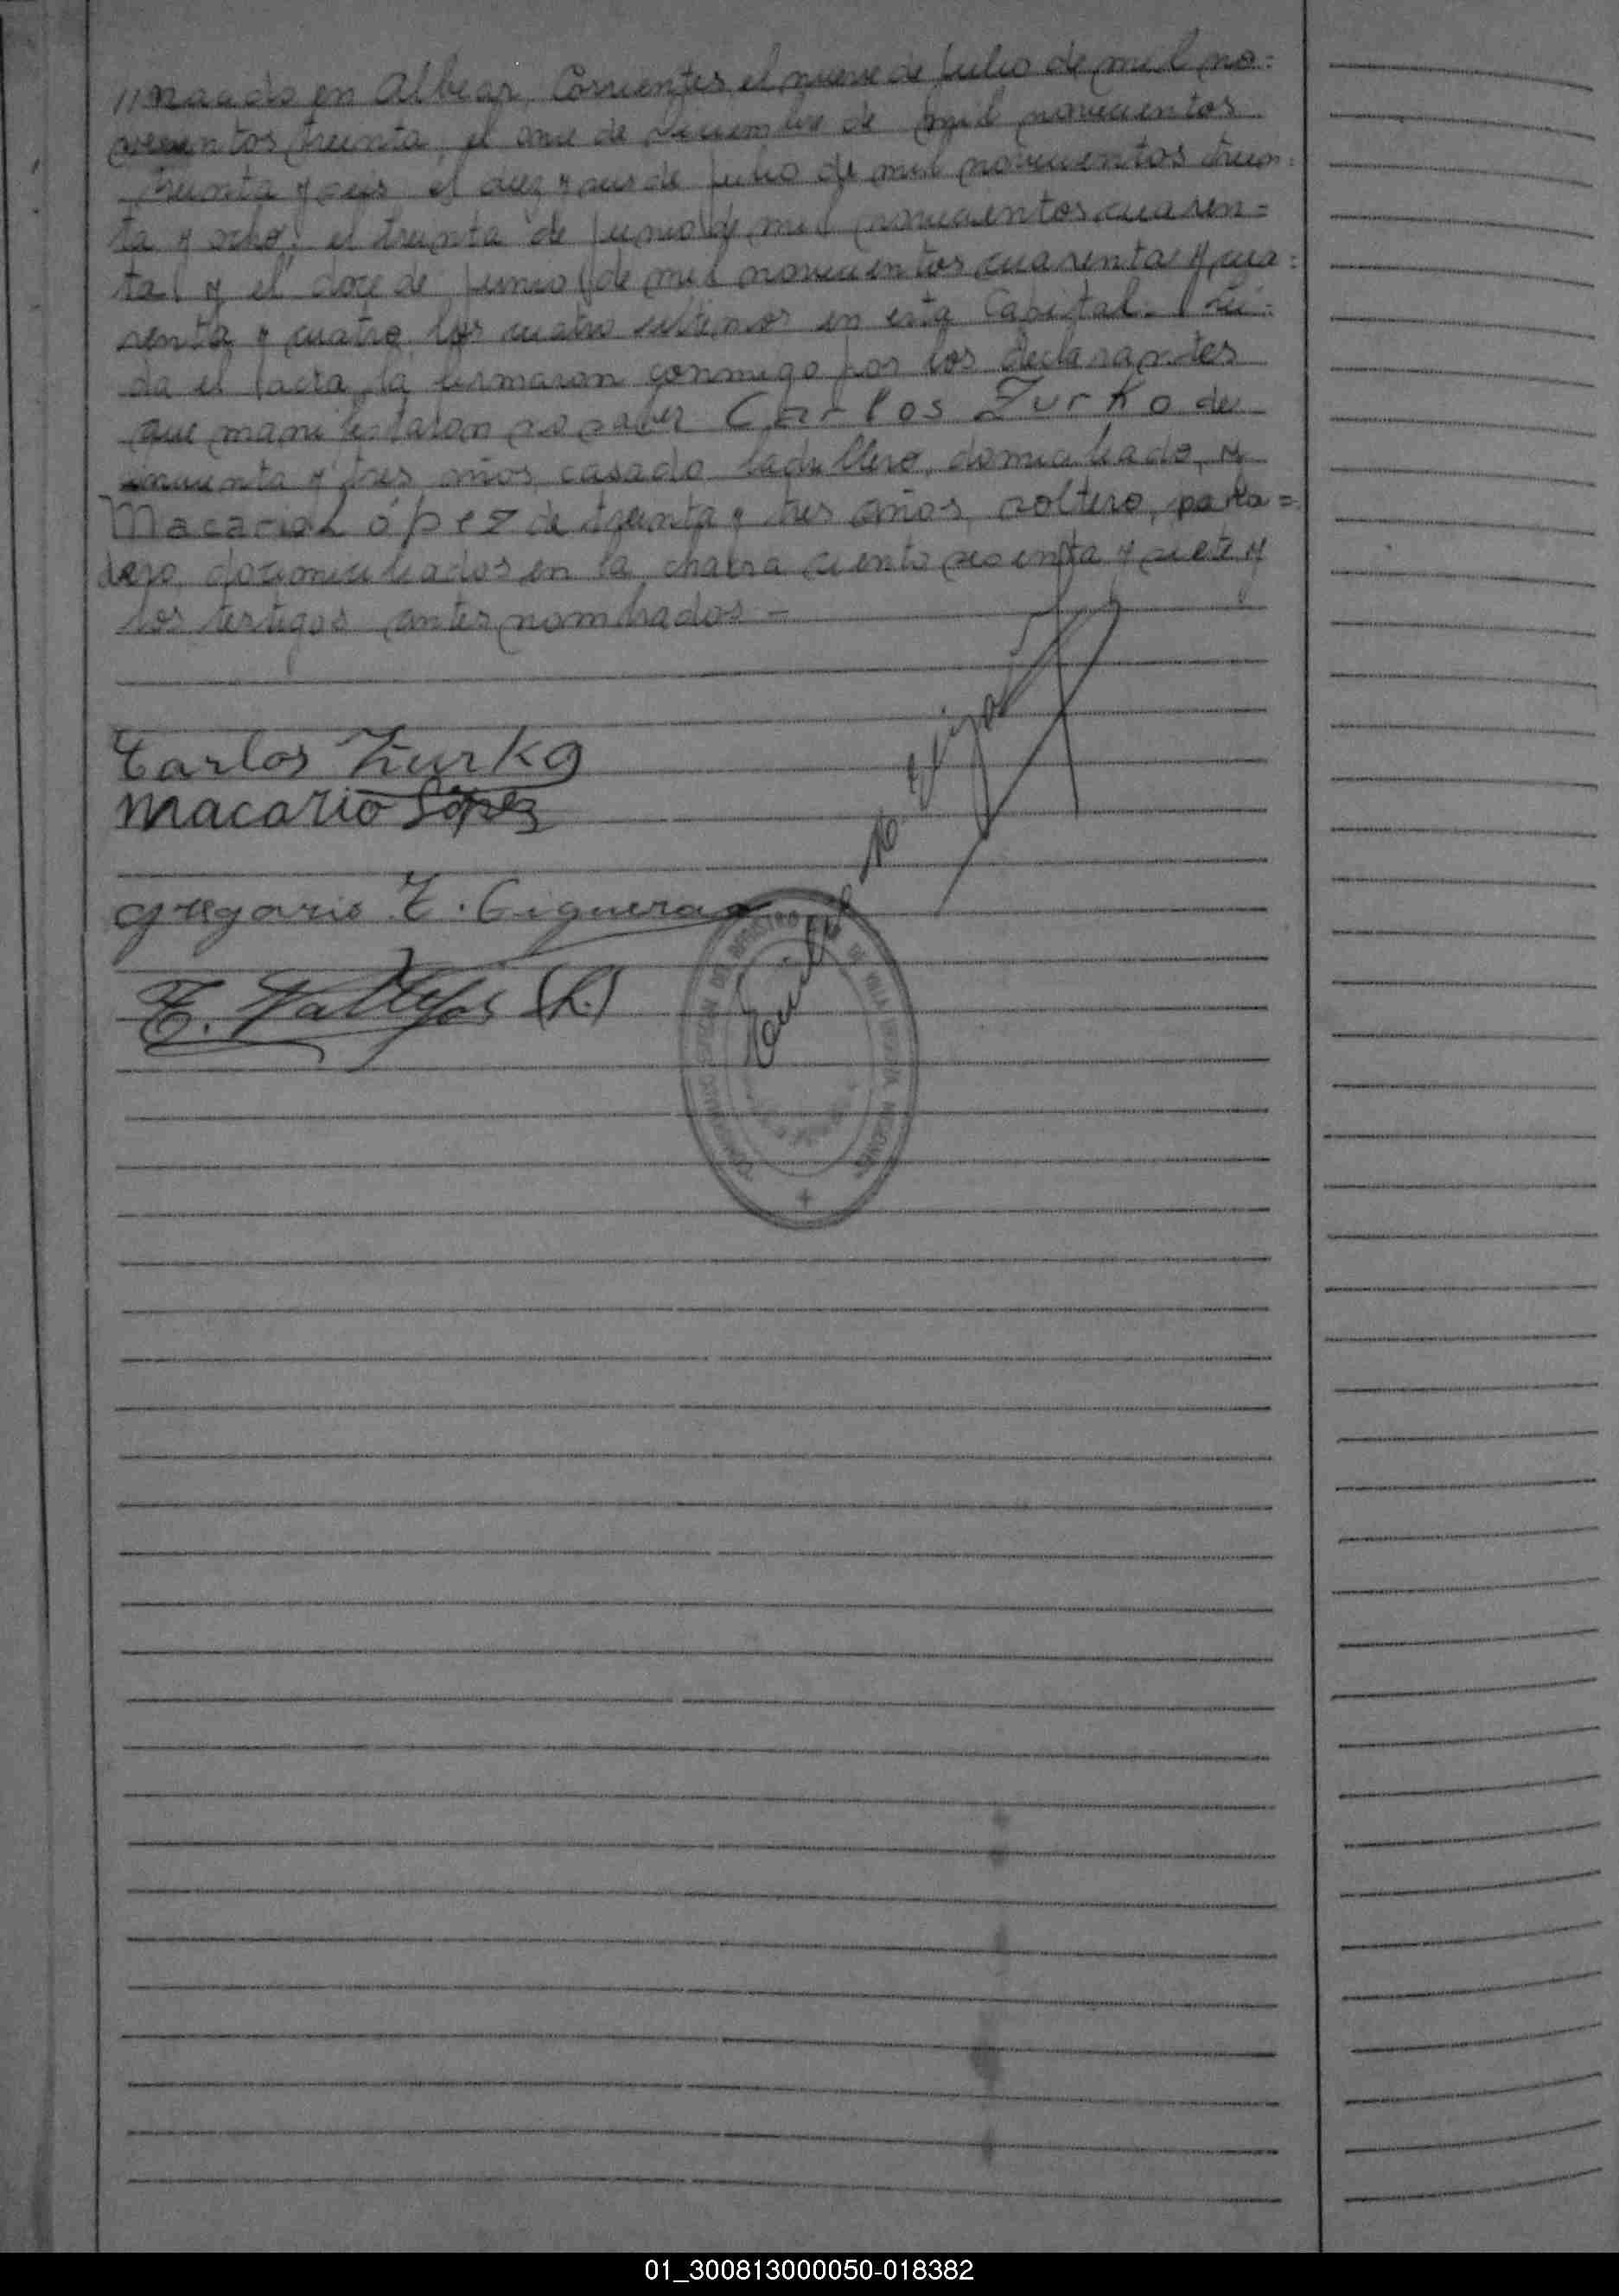 //nacido en Albear, Corrientes, el nueve de Julio de mil no=
vecientos treinta, el once de Diciembre de mil novecientos
treinta y seis el diez y seis de Julio de mil novecientos trein=
ta y ocho, el treinta de Junio de mil novecientos cuaren=
ta y el doce de Junio de mil novecientos cuarenta y cua=
renta y cuatro los cuatro ultimos en esta Capital. Leí=
da el acta, la firmaron conmigo por los declarantes
que manifestaron no saber Carlos Zurko de
cincuenta y tres años, casado ladrillero, domiciliado, y
Macario López de treinta y tres años, soltero, pana=
dero, docimiciliados en la chacra ciento sesenta y siete y
los testigos antes nombrados =
Carlos Zurko
Macario López
Gregorio T. Cigueras
T. Vallejos (h.)
DEL REGISTRO DE VILLA MISIONES
01_300813000050-018382